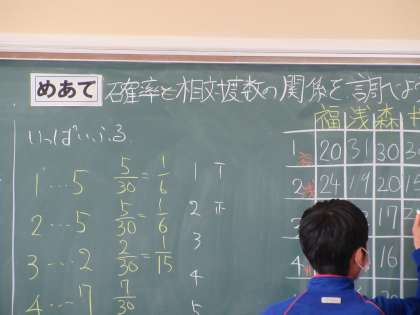 めあて 確率と相対度数の関係を調べよう
いっぱいふる
1…5 5/30=1/6
2…5 5/30=1/6
3…2 2/30=1/15
4…7 7/30
1 T
2 正
3
4
5
福 浅 森
1 20 31 30
2 24 19 20 15
3 17
4 16